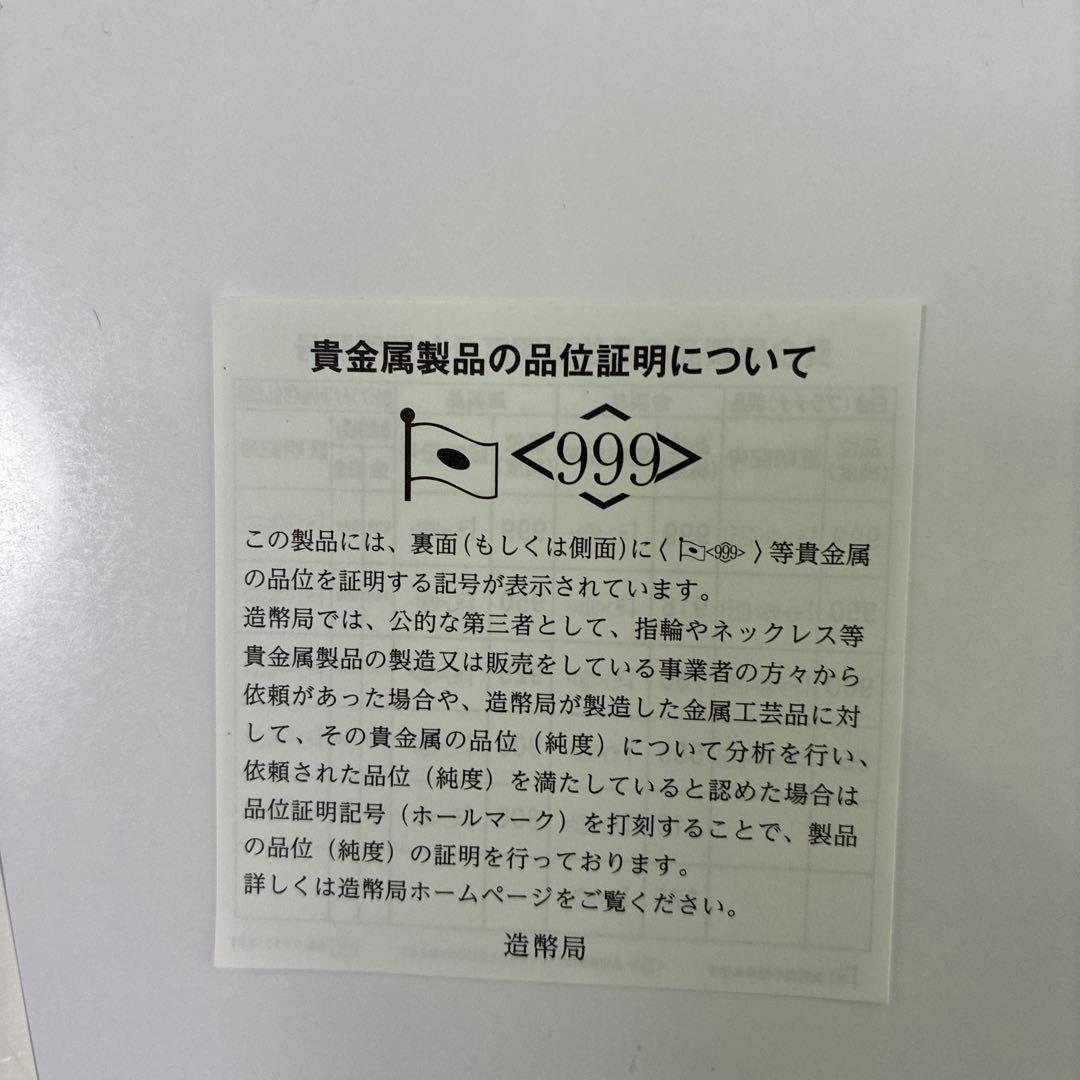 貴金属製品の品位証明について
<999>
この製品には、裏面(もしくは側面)に〈 <999> 〉等貴金属
の品位を証明する記号が表示されています。
造幣局では、公的な第三者として、指輪やネックレス等
貴金属製品の製造又は販売をしている事業者の方々から
依頼があった場合や、造幣局が製造した金属工芸品に対
して、その貴金属の品位（純度）について分析を行い、
依頼された品位（純度）を満たしていると認めた場合は
品位証明記号（ホールマーク）を打刻することで、製品
の品位（純度）の証明を行っております。
詳しくは造幣局ホームページをご覧ください。
造幣局